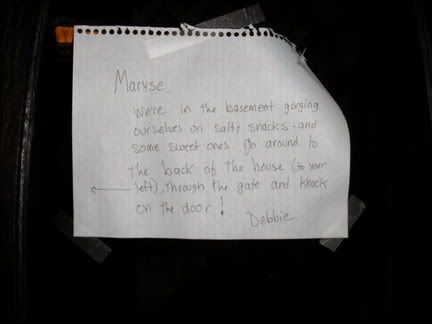 Maryse,
We're in the basement gorging
ourselves on salty snacks - and
some sweet ones. Go around to
the back of the house (to your
left), through the gate and knock
on the door!
Debbie